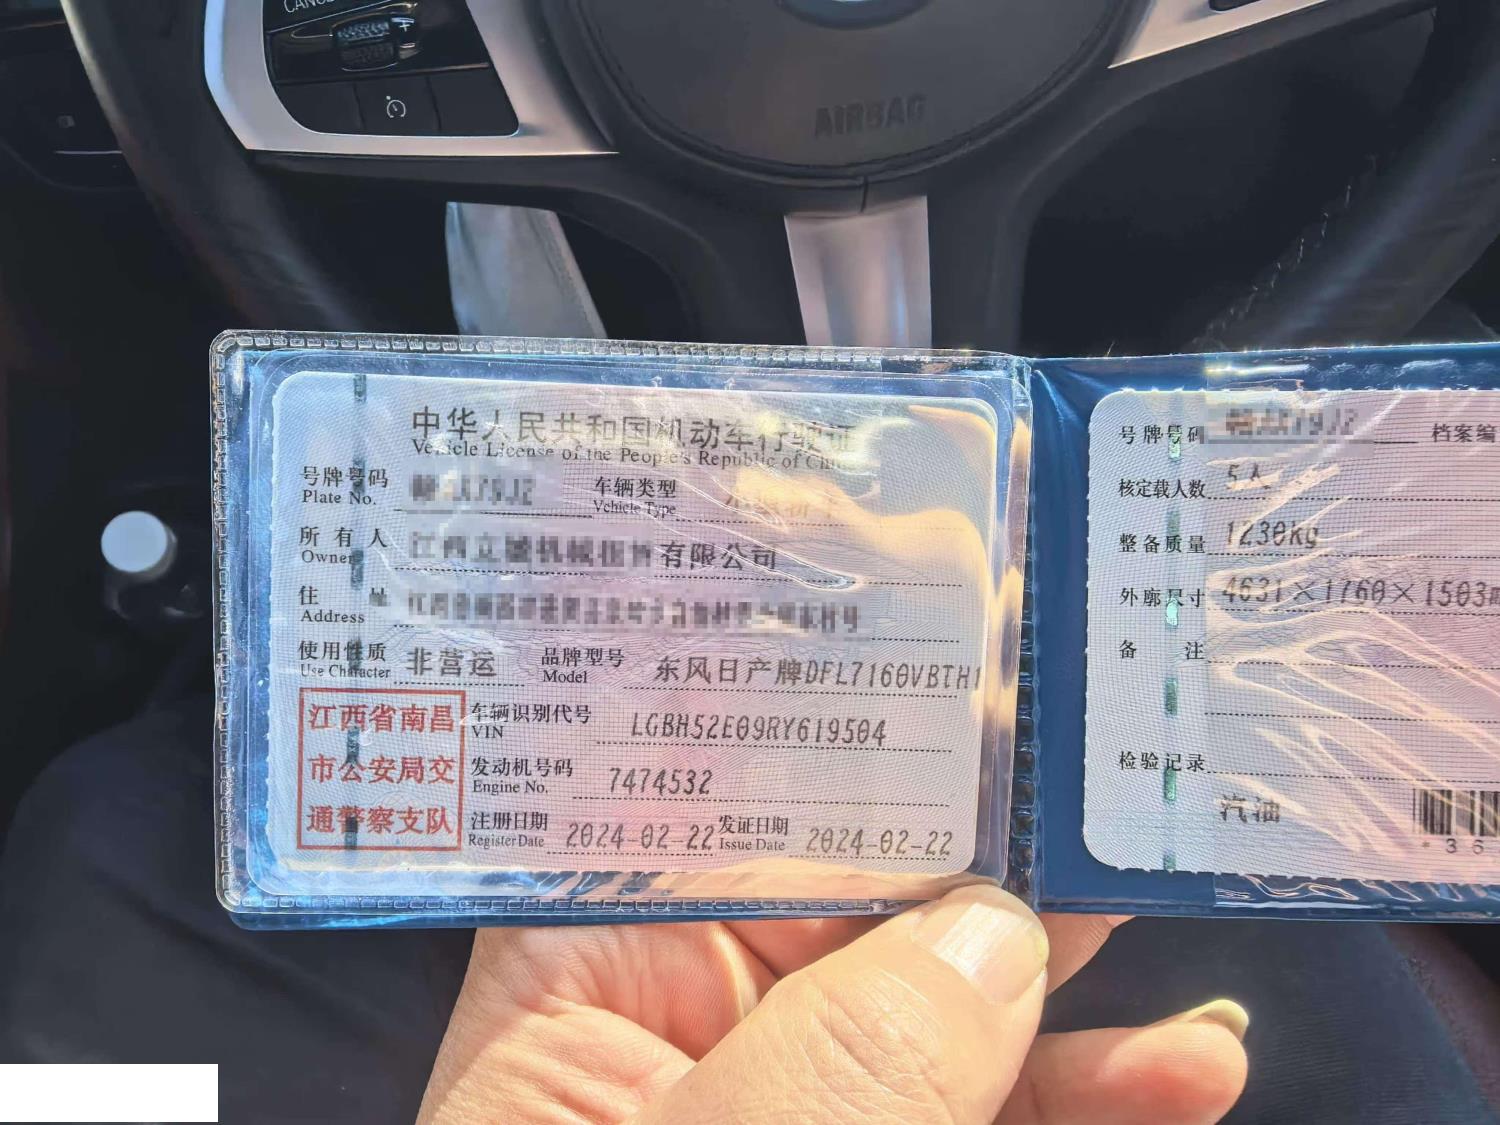 AIRBAG
中华人民共和国机动车行驶证
Vehicle License of the People's Republic of China
号牌号码
Plate No.
车辆类型
Vehicle Type
所有人
Owner
有限公司
住址
Address
使用性质
Use Character
非营运
品牌型号
Model
东风日产牌DFL7160VBTH1
江西省南昌
市公安局交
通警察支队
车辆识别代号
VIN
LGBH52E09RY619504
发动机号码
Engine No.
7474532
注册日期
Register Date
2024-02-22
发证日期
Issue Date
2024-02-22
号牌号码
档案编
核定载人数
5人
整备质量
1230kg
外廓尺寸
4631×1760×1503
备注
检验记录
汽油
*36